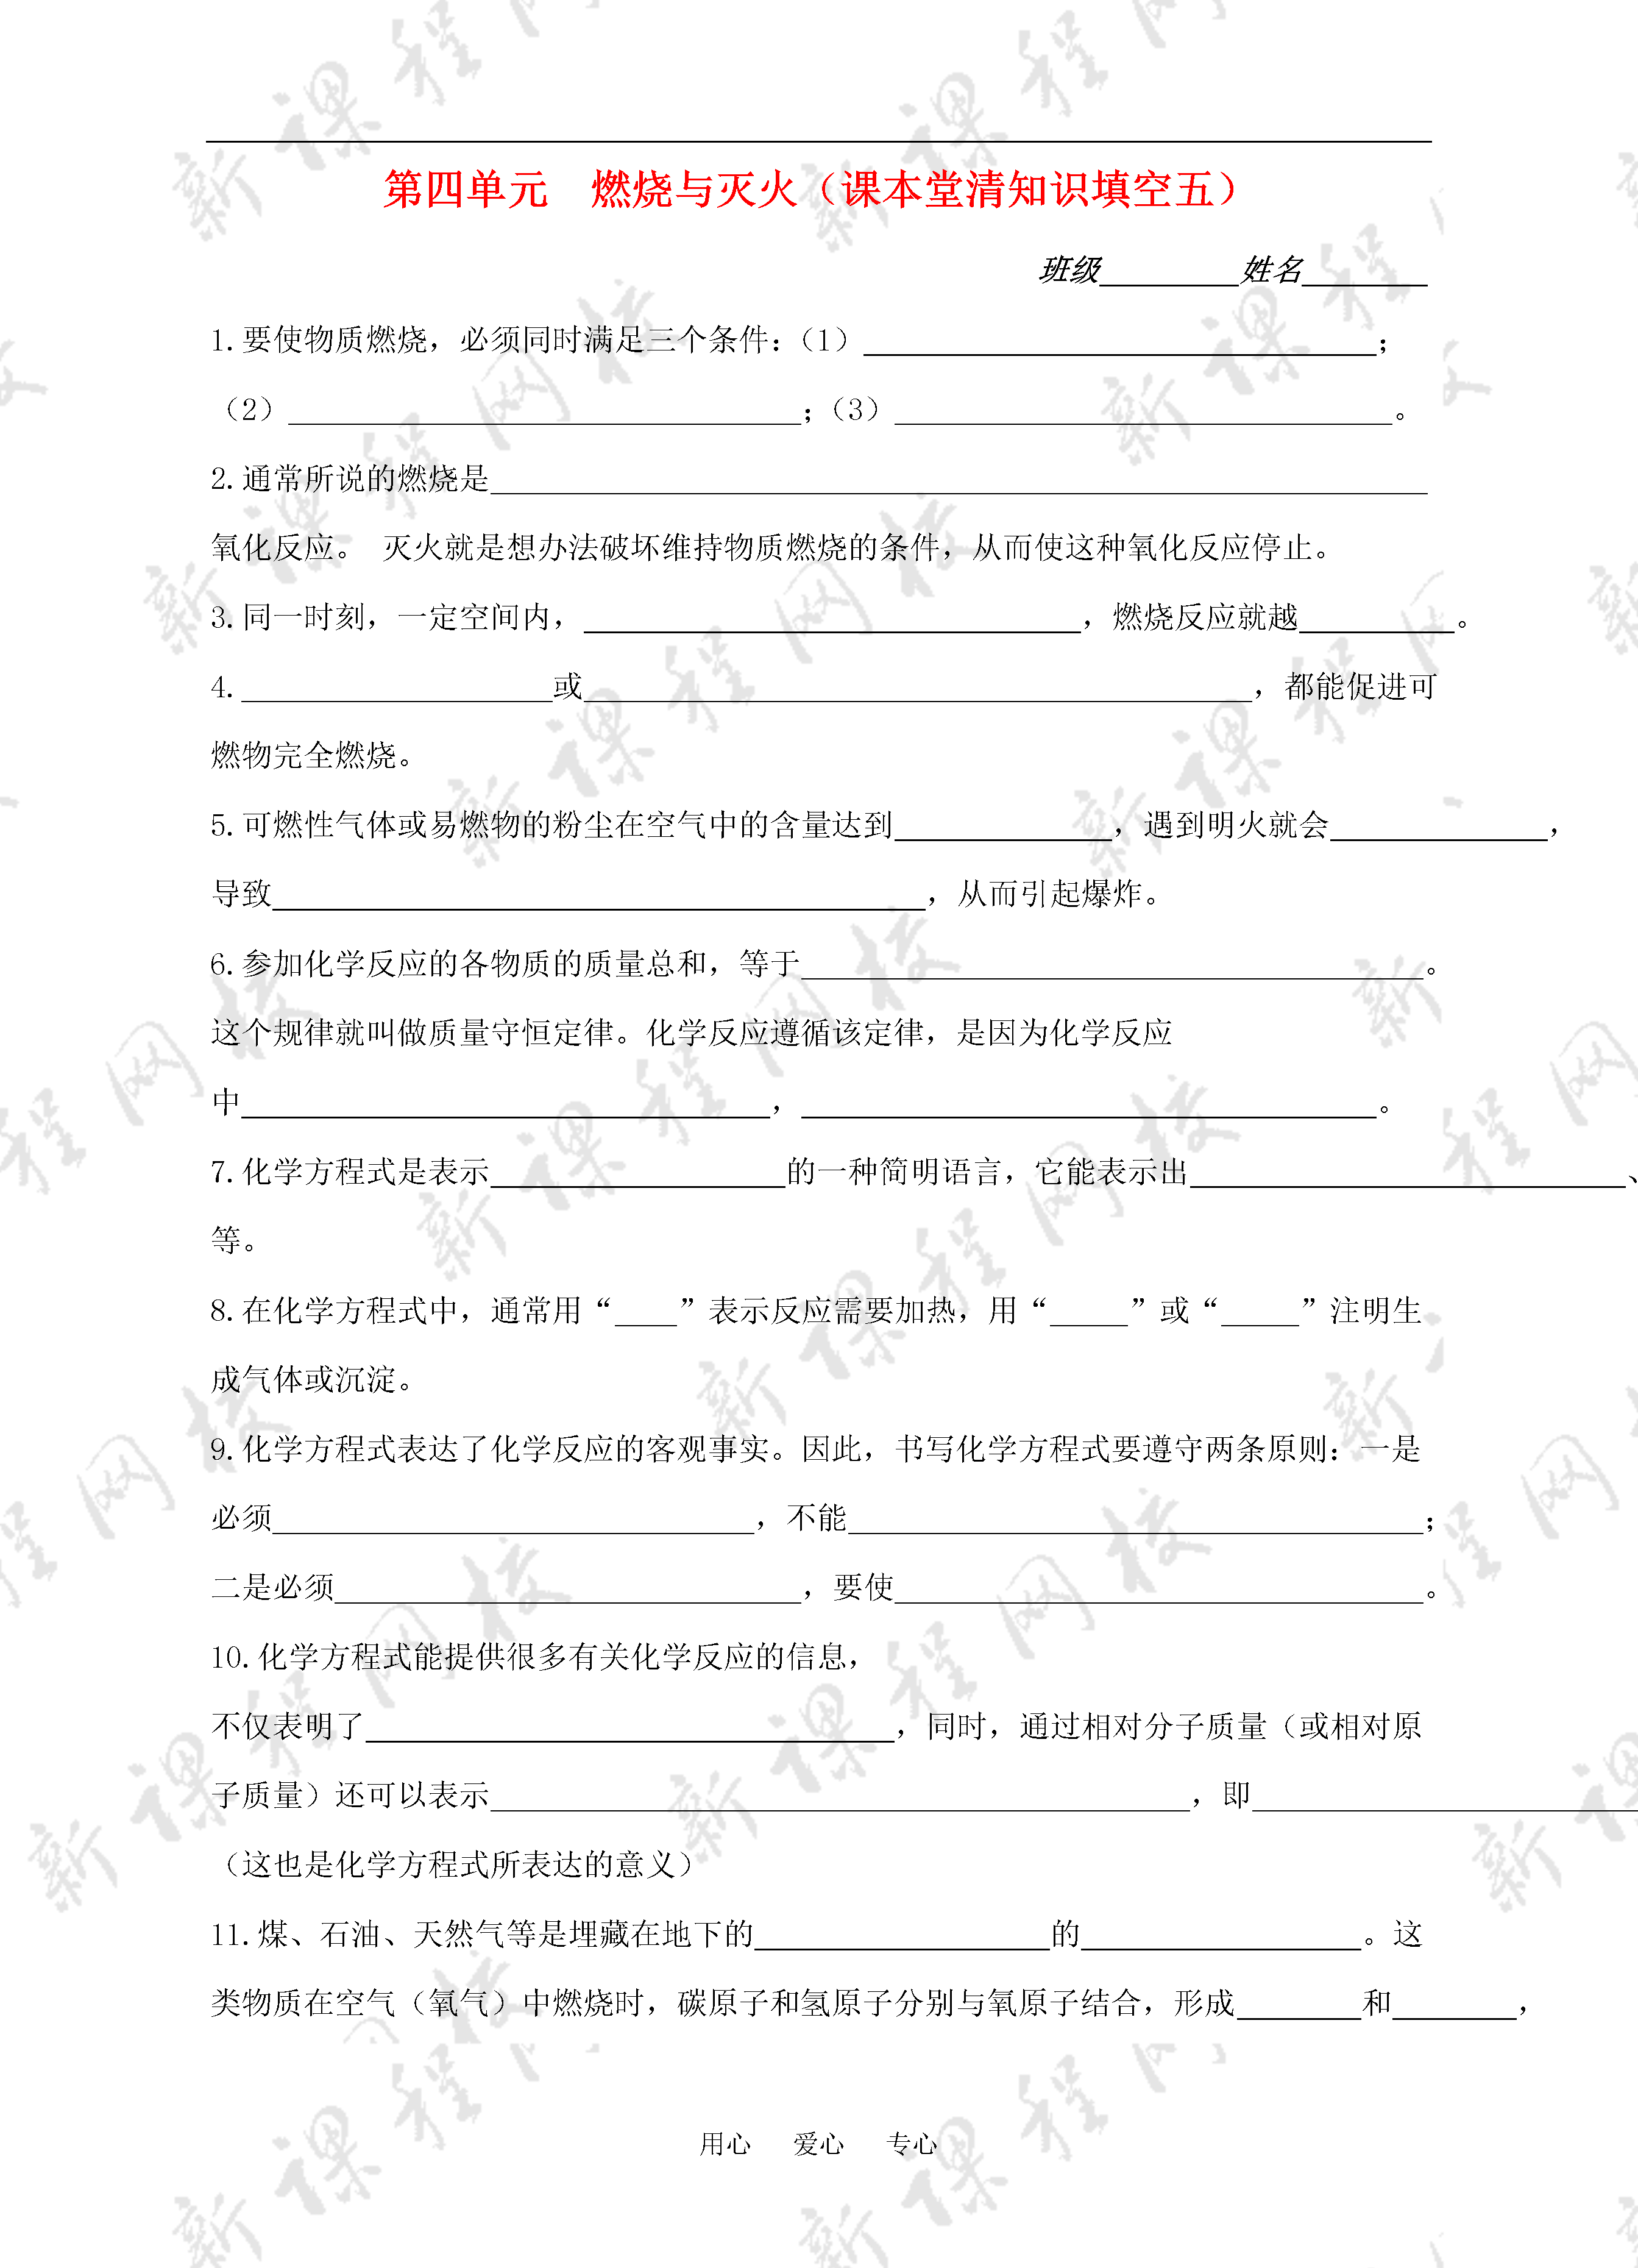 第四单元　燃烧与灭火（课本堂清知识填空五）
班级_________姓名________
1.要使物质燃烧，必须同时满足三个条件：（1）_________________________________；
（2）_________________________________；（3）________________________________。
2.通常所说的燃烧是____________________________________________________________
氧化反应。 灭火就是想办法破坏维持物质燃烧的条件，从而使这种氧化反应停止。
3.同一时刻，一定空间内，________________________________，燃烧反应就越__________。
4.____________________或___________________________________________，都能促进可
燃物完全燃烧。
5.可燃性气体或易燃物的粉尘在空气中的含量达到______________，遇到明火就会______________，
导致__________________________________________，从而引起爆炸。
6.参加化学反应的各物质的质量总和，等于________________________________________。
这个规律就叫做质量守恒定律。化学反应遵循该定律，是因为化学反应
中__________________________________，_____________________________________。
7.化学方程式是表示___________________的一种简明语言，它能表示出____________________________、
等。
8.在化学方程式中，通常用“____”表示反应需要加热，用“_____”或“_____”注明生
成气体或沉淀。
9.化学方程式表达了化学反应的客观事实。因此，书写化学方程式要遵守两条原则：一是
必须_______________________________，不能_____________________________________；
二是必须______________________________，要使__________________________________。
10.化学方程式能提供很多有关化学反应的信息，
不仅表明了__________________________________，同时，通过相对分子质量（或相对原
子质量）还可以表示_____________________________________________，即_________________________
（这也是化学方程式所表达的意义）
11.煤、石油、天然气等是埋藏在地下的___________________的__________________。这
类物质在空气（氧气）中燃烧时，碳原子和氢原子分别与氧原子结合，形成________和________，
用心　爱心　专心
新课程网校